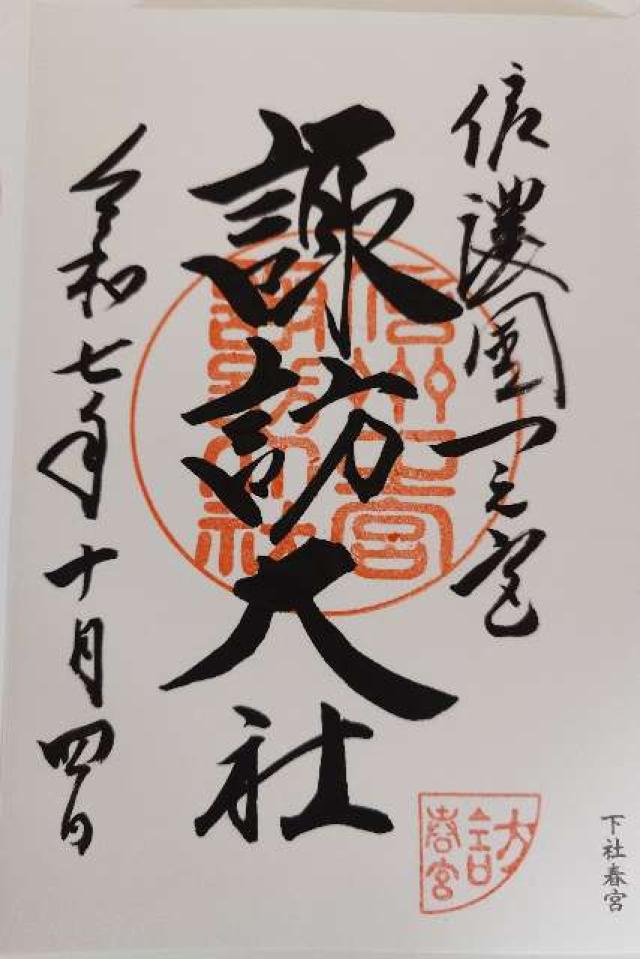 信濃國一之宮
諏訪大社
令和七年十月四日
信州一宮
諏訪大社
春宮
下社春宮